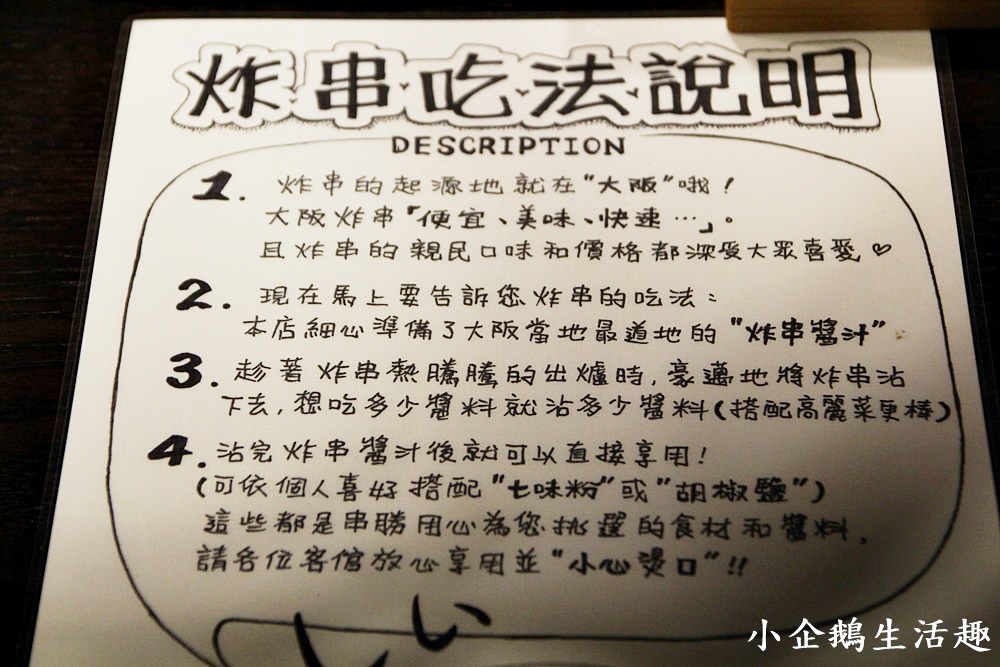 炸串吃法說明
DESCRIPTION
1. 炸串的起源地就在"大阪"哦!
大阪炸串「便宜、美味、快速…」。
且炸串的親民口味和價格都深受大眾喜愛♡
2. 現在馬上要告訴您炸串的吃法:
本店細心準備了大阪當地最道地的"炸串醬汁"
3. 趁著炸串熱騰騰的出爐時,豪邁地將炸串沾
下去,想吃多少醬料就沾多少醬料(搭配高麗菜更棒)
4. 沾完炸串醬汁後就可以直接享用!
(可依個人喜好搭配"七味粉"或"胡椒鹽")
這些都是串勝用心為您挑選的食材和醬料,
請各位客倌放心享用並"小心燙口"!!
小企鵝生活趣